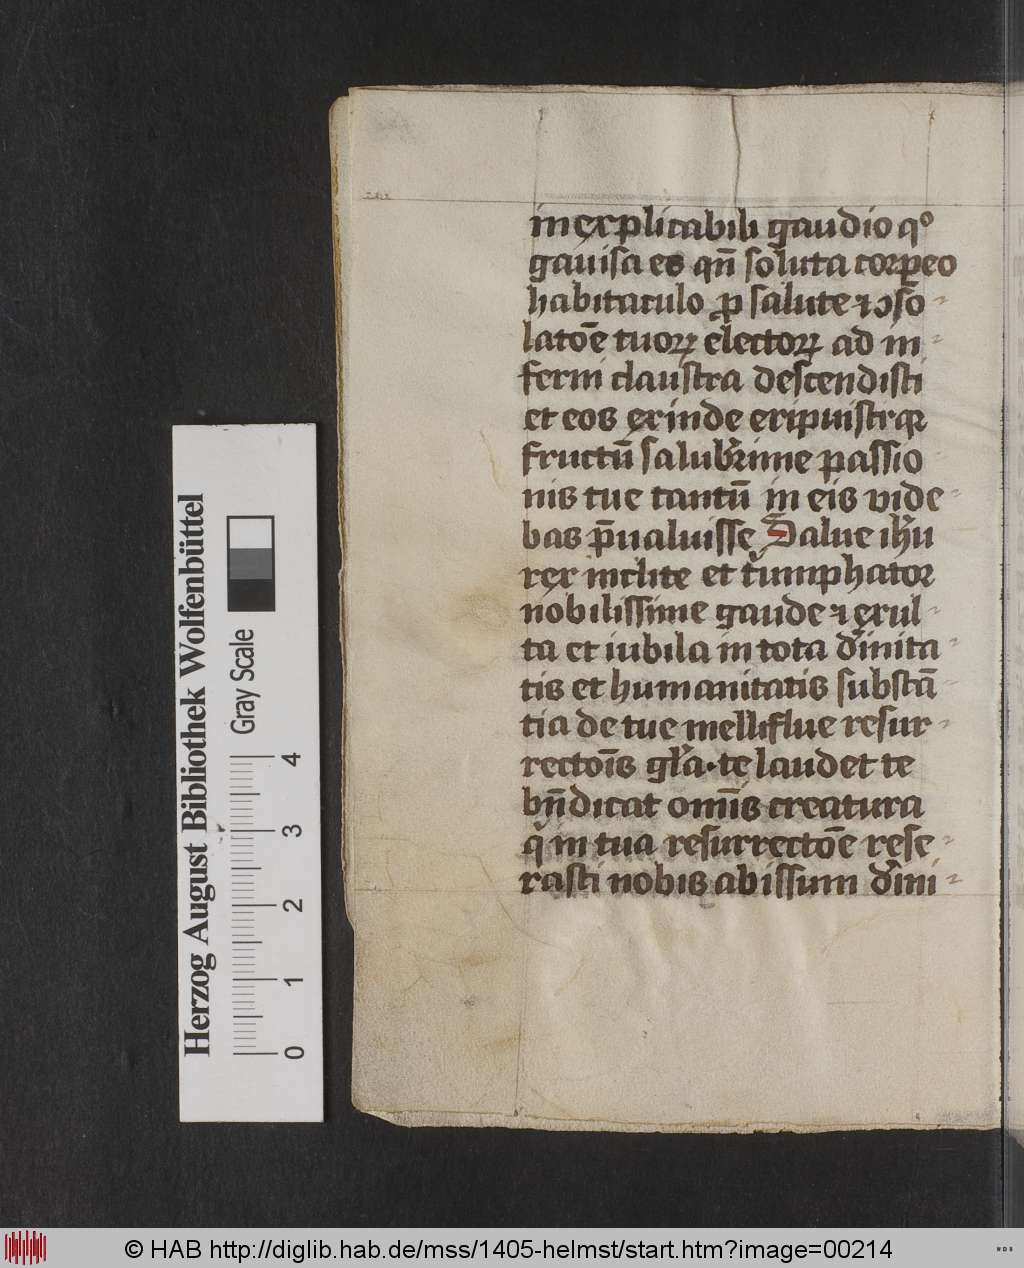 inexplicabili gaudio qͦ
gauisa es qn̄ soluta corꝑeo
habitaculo ꝓ salute ⁊ ↄsō-
latōe tuoꝝ electoꝝ ad in-
ferni claustra descendisti
et eos exinde eripuistiqꝫ
fructū salub̓rime passio
nis tue tantū in eis vide-
bas p̄ualuisse Salue ih̓u
rex inclite et t̓umphator
nobilissime gaude ⁊ exul-
ta et iubila in tota d̓inita-
tis et humanitatis substā-
tia de tue melliflue resur-
rectoīs gl̓a · te laudet te
bn̄dicat omīs creatura
q̓ in tua resurrectōe rese-
rasti nobis abissum d̓ini-
Herzog August Bibliothek Wolfenbüttel
Gray Scale
0 1 2 3 4
© HAB http://diglib.hab.de/mss/1405-helmst/start.htm?image=00214